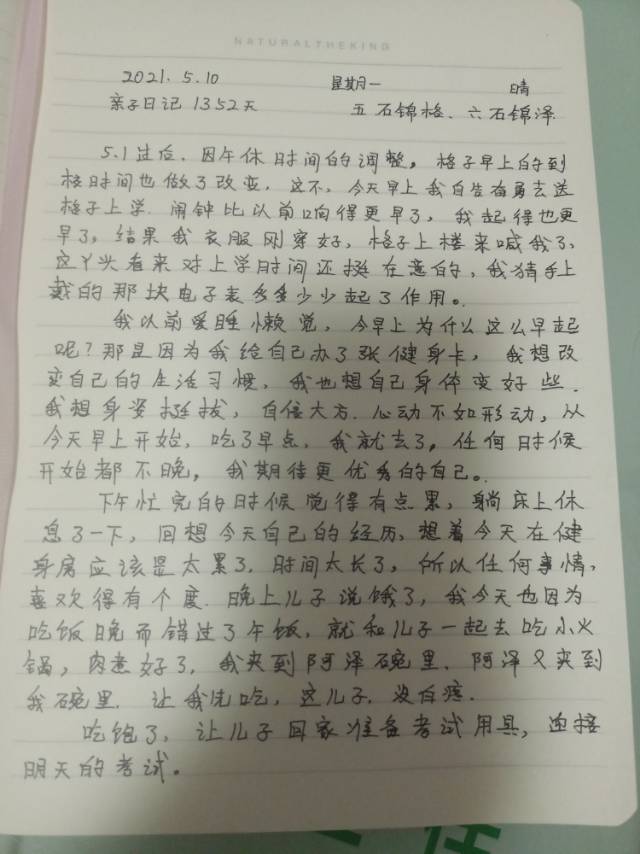 NATURALTHEKING
2021.5.10 星期一 晴
亲子日记1352天 五石锦格、六石锦泽
5.1过后,因午休时间的调整,格子早上的到
校时间也做了改变,这不,今天早上我自告奋勇去送
格子上学.闹钟比以前响得更早了,我起得也更
早了,结果我衣服刚穿好,格子上楼来喊我了,
这丫头看来对上学时间还挺在意的,我猜手上
戴的那块电子表多多少少起了作用。
我以前爱睡懒觉,今早上为什么这么早起
呢?那是因为我给自己办了张健身卡,我想改
变自己的生活习惯,我也想自己身体变好些.
我想身姿挺拔,自信大方.心动不如形动,从
今天早上开始,吃了早点,我就去了,任何时候
开始都不晚,我期待更优秀的自己。
下午忙完的时候觉得有点累,躺床上休
息了一下,回想今天自己的经历,想着今天在健
身房应该是太累了.时间太长了,所以任何事情,
喜欢得有个度.晚上儿子说饿了,我今天也因为
吃饭晚而错过了午饭,就和儿子一起去吃小火
锅,肉煮好了,我夹到阿泽碗里.阿泽又夹到
我碗里.让我先吃,这儿子.没白疼.
吃饱了,让儿子回家准备考试用具,迎接
明天的考试。